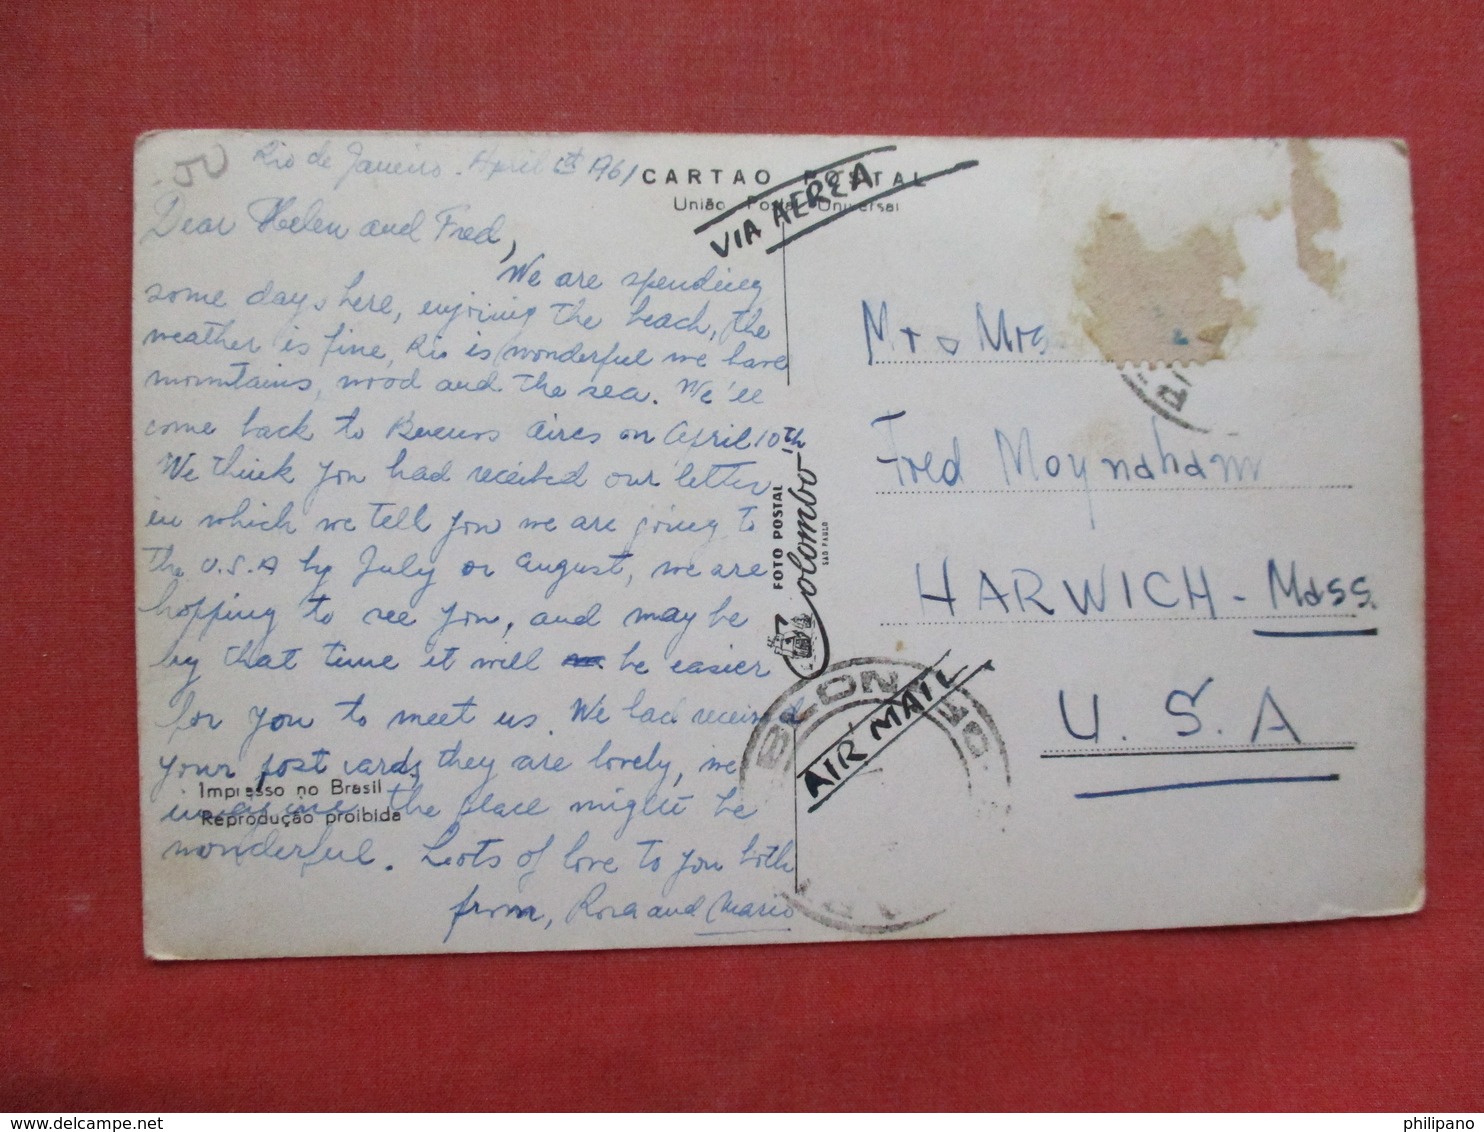 50
Rio de Janeiro. April 1961
Dear Helen and Fred,
We are spending
some days here, enjoing the beach, the
weather is fine, Rio is wonderful we have
mountains, wood and the sea. We'll
come back to Buenos Aires on April 10th
We think you had received our letter
in which we tell you we are going to
the U.S.A by July or August, we are
hopping to see you, and may be
by that time it will be easier
for you to meet us. We had received
your post cards, they are lovely, we
imagine the place might be
wonderful. Lots of love to you both
from, Rosa and Mario
Impresso no Brasil
Reprodução proibida
CARTAO POSTAL
União Postal Universal
VIA AEREA
FOTO POSTAL
Colombo
SÃO PAULO
Mr & Mrs
Fred Moynaham
HARWICH - Mass.
U. S. A
AIR MAIL
philipano